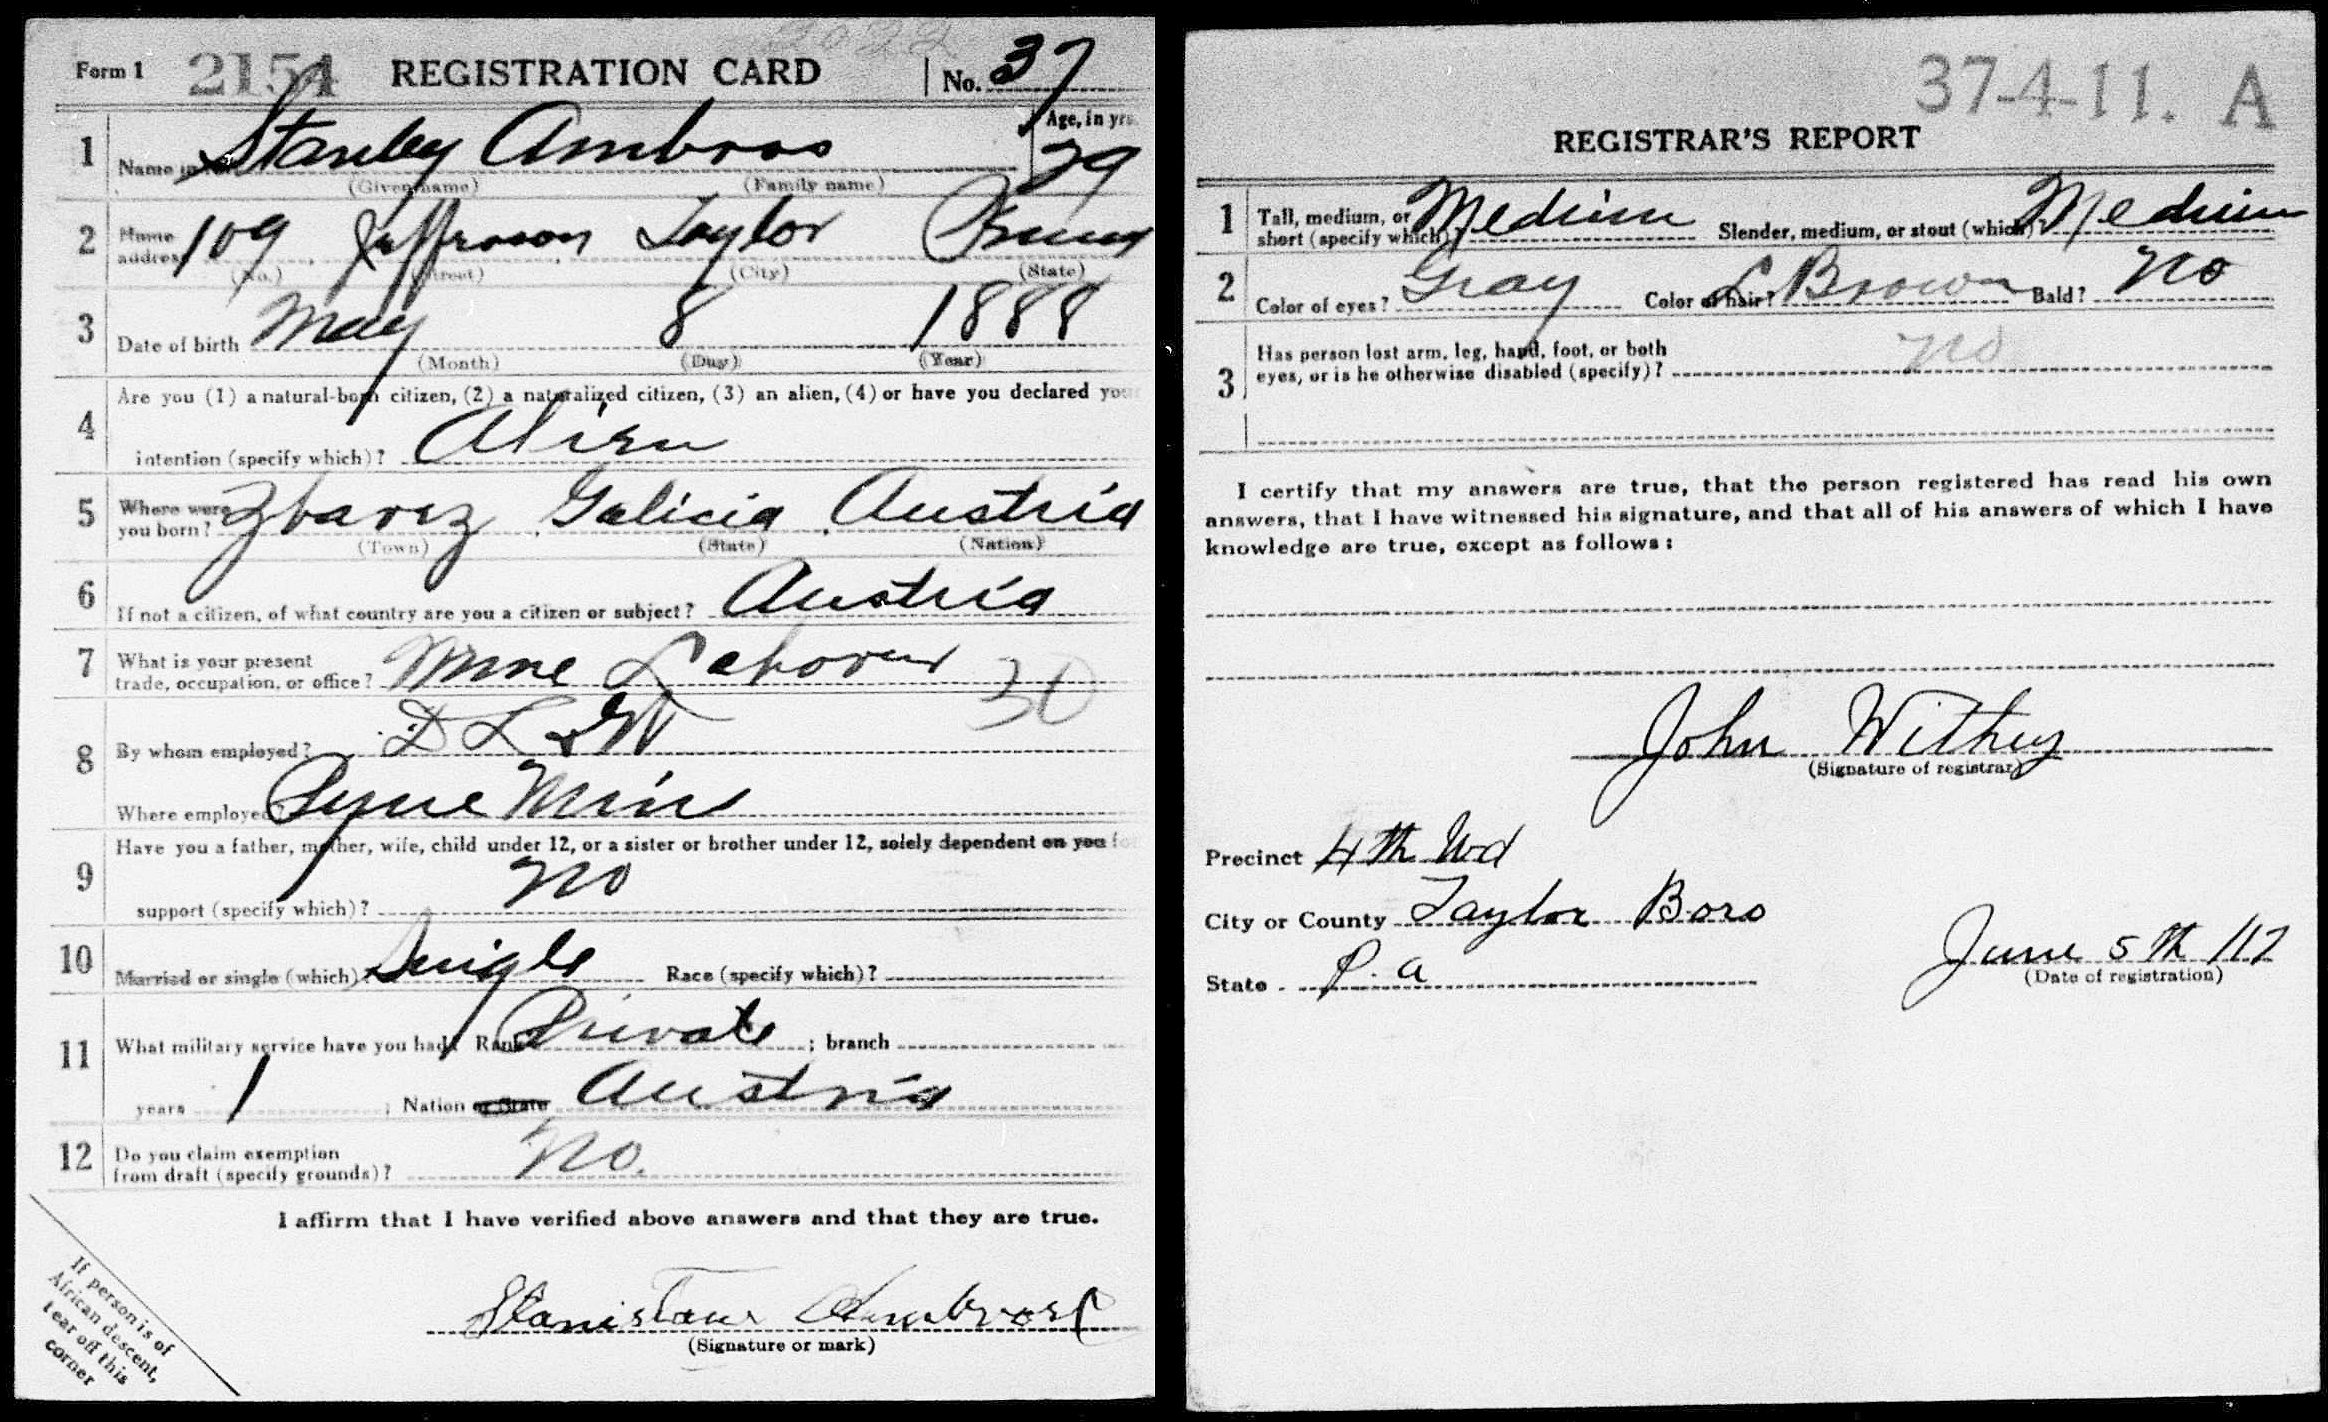 2022
Form 1 2154 REGISTRATION CARD No. 37
1 Name in full Stanley Ambros Age, in yrs. 29
(Given name) (Family name)
2 Home address 109 Jefferson Taylor Penna
(No.) (Street) (City) (State)
3 Date of birth May 8 1888
(Month) (Day) (Year)
4 Are you (1) a natural-born citizen, (2) a naturalized citizen, (3) an alien, (4) or have you declared your
intention (specify which)? Alien
5 Where were you born? Zbarez, Galicia, Austria
(Town) (State) (Nation)
6 If not a citizen, of what country are you a citizen or subject? Austria
7 What is your present trade, occupation, or office? Mine Laborer 30
8 By whom employed? D L & W
Where employed? Pyne Mine
9 Have you a father, mother, wife, child under 12, or a sister or brother under 12, solely dependent on you for
support (specify which)? No
10 Married or single (which)? Single Race (specify which)?
11 What military service have you had? Rank Private ; branch
years 1 ; Nation or State Austria
12 Do you claim exemption from draft (specify grounds)? No.
I affirm that I have verified above answers and that they are true.
Stanisław Ambros
(Signature or mark)
If person is of
African descent,
tear off this
corner
37-4-11. A
REGISTRAR'S REPORT
1 Tall, medium, or short (specify which)? Medium Slender, medium, or stout (which)? Medium
2 Color of eyes? Gray Color of hair? L Brown Bald? No
3 Has person lost arm, leg, hand, foot, or both
eyes, or is he otherwise disabled (specify)? No
I certify that my answers are true, that the person registered has read his own
answers, that I have witnessed his signature, and that all of his answers of which I have
knowledge are true, except as follows:
John
(Signature of registrar)
Precinct 4th Wd
City or County Taylor Boro
State P. a June 5th /17
(Date of registration)